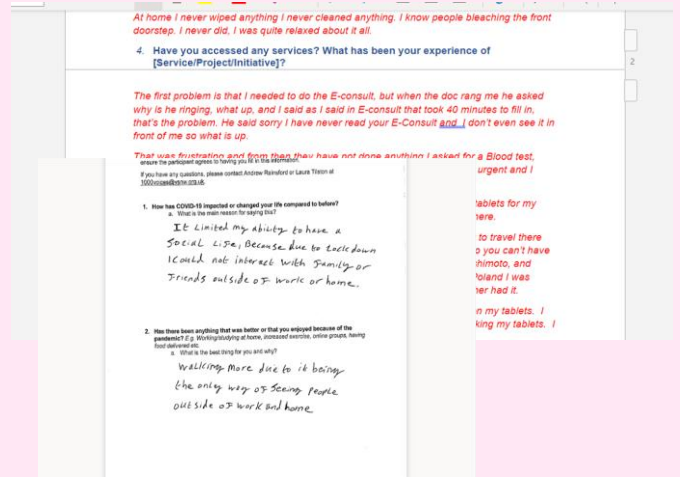 At home I never wiped anything I never cleaned anything. I know people bleaching the front
doorstep. I never did, I was quite relaxed about it all.
4. Have you accessed any services? What has been your experience of
[Service/Project/Initiative]?
2
The first problem is that I needed to do the E-consult, but when the doc rang me he asked
why is he ringing, what up, and I said as I said in E-consult that took 40 minutes to fill in,
that's the problem. He said sorry I have never read your E-Consult and I don't even see it in
front of me so what is up.
That was frustrating and from then they have not done anything I asked for a Blood test,
urgent and I
tablets for my
here.
to travel there
you can't have
himoto, and
Poland I was
her had it.
n my tablets. I
king my tablets. I
ensure the participant agrees to having you fill in this information.
If you have any questions, please contact Andrew Rainsford or Laura Tilston at
1. How has COVID-19 impacted or changed your life compared to before?
a. What is the main reason for saying this?
It Limited my ability to have a
Social Life, Because due to Lockdown
I could not interact with Family or
Friends outside of work or home.
2. Has there been anything that was better or that you enjoyed because of the
pandemic? E.g. Working/studying at home, increased exercise, online groups, having
food delivered etc.
a. What is the best thing for you and why?
Walking more due to it being
the only way of Seeing People
outside of work and home